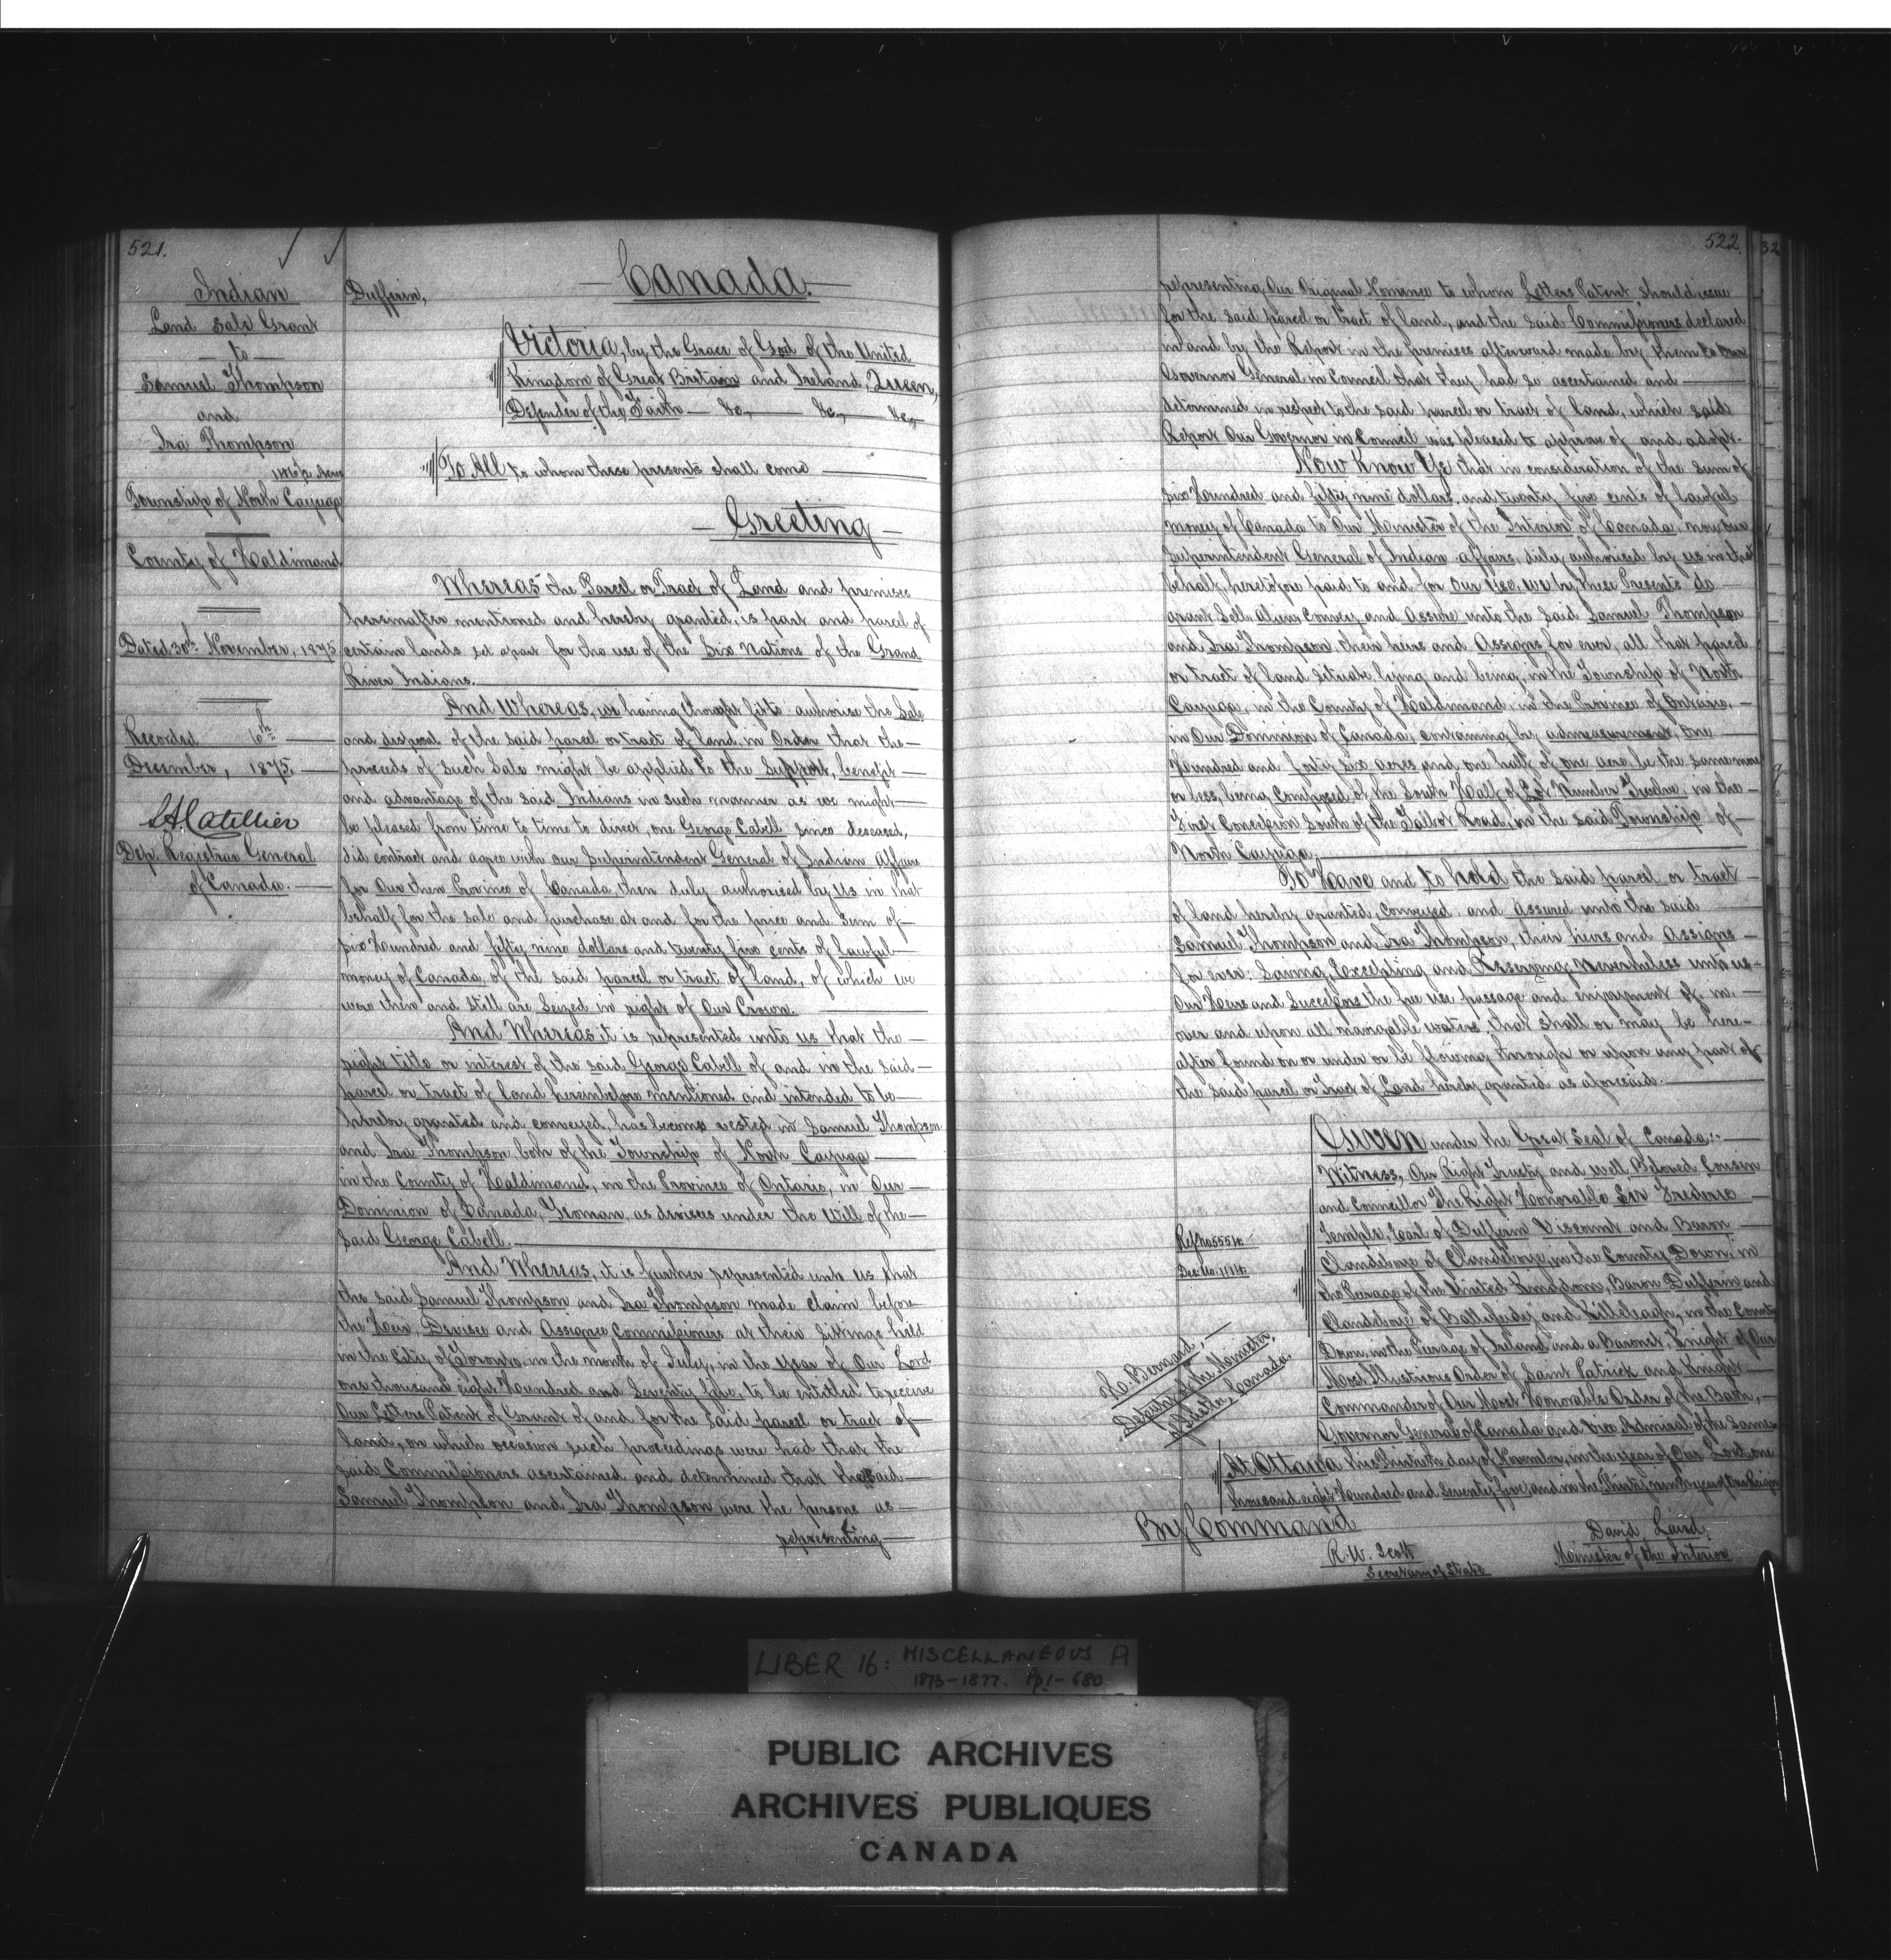 521.
Indian
Land Sale Grant
— to —
Samuel Thompson
and
Ira Thompson
146½ Acres
Township of North Cayuga
County of Haldimand
Dated 30th November, 1875
Recorded 6th
December, 1875,
Dep. Registrar General
of Canada.
Dufferin,
— Canada. —
Victoria, by the Grace of God of the United
Kingdom of Great Britain and Ireland, Queen,
Defender of the Faith — &c, — &c, — &c,
To All to whom these presents shall come
— Greeting —
Whereas the Parcel or Tract of Land and premises
hereinafter mentioned and hereby granted, is part and parcel of
certain lands set apart for the use of the Six Nations of the Grand
River Indians.
And Whereas, we having thought fit to authorise the Sale
and disposal of the said parcel or tract of land in Order that the
proceeds of such Sale might be applied to the Support, benefit
and advantage of the said Indians in such manner as we might
be pleased from time to time to direct, one George Cabell since deceased,
did contract and agree with our Superintendent General of Indian Affairs
for Our then Province of Canada, then duly authorised by us in that
behalf for the sale and purchase at and for the price and Sum of
Six Hundred and fifty nine dollars and twenty five cents of lawful
money of Canada, of the said parcel or tract of land, of which we
were then and still are Seized in right of Our Crown.
And Whereas it is represented unto us that the
right title or interest of the said George Cabell of and in the said
parcel or tract of land hereinbefore mentioned and intended to be
hereby granted and conveyed, has become vested in Samuel Thompson
and Ira Thompson both of the Township of North Cayuga
in the County of Haldimand, in the Province of Ontario, in Our
Dominion of Canada, Yeoman, as devisees under the Will of the
said George Cabell.
And Whereas, it is further represented unto us that
the said Samuel Thompson and Ira Thompson made claim before
the Heir, Devisee and Assignee Commissioners at their Sittings held
in the City of Toronto, in the month of July, in the year of Our Lord
one thousand eight Hundred and Seventy five, to be entitled to receive
Our Letters Patent of Grant of and for the said parcel or tract of
land, on which occasion such proceedings were had that the
said Commissioners ascertained and determined that the said
Samuel Thompson and Ira Thompson were the persons as
representing
522
32
representing Our Original Nominee to whom Letters Patent should issue
for the said parcel or tract of land, and the said Commissioners declared
in and by the Report in the premises afterward made by them to Our
Governor General in Council that they had so ascertained and
determined in respect to the said parcel or tract of land, which said
Report Our Governor in Council was pleased to approve of and adopt.
Now Know Ye that in consideration of the sum of
Six Hundred and fifty nine dollars and twenty five cents of lawful
money of Canada to Our Minister of the Interior of Canada, now our
Superintendent General of Indian Affairs, duly authorised by us in that
behalf, heretofore paid to and for Our Use, we by these Presents do
grant Sell Alien Convey and Assure unto the said Samuel Thompson
and Ira Thompson, their heirs and Assigns for ever, all that parcel
or tract of land situate lying and being, in the Township of North
Cayuga, in the County of Haldimand, in the Province of Ontario,
in Our Dominion of Canada, containing by admeasurement, One
Hundred and forty six acres and one half of one acre be the same more
or less, being composed of the South Half of Lot Number Twelve, in the
First Concession South of the Talbot Road, in the said Township of
North Cayuga,
To Have and to hold the said parcel or tract
of land hereby granted, conveyed and assured unto the said
Samuel Thompson and Ira Thompson, their heirs and Assigns
for ever: Saving, Excepting and Reserving nevertheless unto us
Our Heirs and Successors the free use passage and enjoyment of, in,
over and upon all navigable waters, that shall or may be here-
after found on or under or be flowing through or upon any part of
the said parcel or Tract of Land hereby granted as aforesaid.
Given under the Great Seal of Canada:
Witness, Our Right Trusty and well Beloved Cousin
and Councillor The Right Honorable Sir Frederic
Temple, Earl of Dufferin Viscount and Baron
Clandeboye of Clandeboye, in the County Down, in
the Peerage of the United Kingdom, Baron Dufferin and
Clandeboye of Ballyleidy and Killeleagh, in the County
Down, in the Peerage of Ireland and a Baronet, Knight of Our
Most Illustrious Order of Saint Patrick and Knight
Commander of Our Most Honorable Order of the Bath,
Governor General of Canada and Vice Admiral of the Same
At Ottawa this Thirtieth day of November, in the year of Our Lord one
thousand eight Hundred and Seventy five, and in the Thirty ninth year of Our Reign
H. Bernard,
Deputy of the Minister
of Justice, Canada.
By Command
R. W. Scott
Secretary of State
David Laird
Minister of the Interior
LIBER 16: MISCELLANEOUS A
1873-1877. Pp 1-680
PUBLIC ARCHIVES
ARCHIVES PUBLIQUES
CANADA